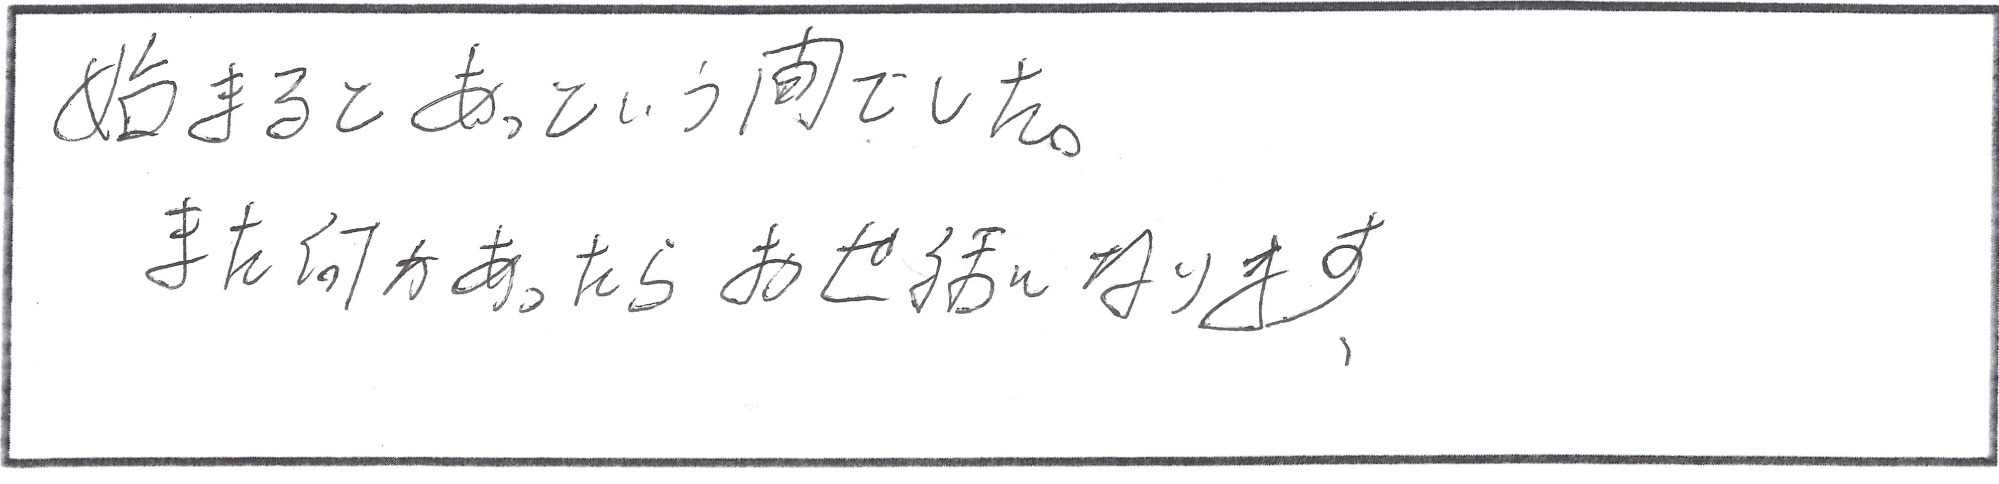 始まるとあっという間でした。
また何かあったらお世話になります、